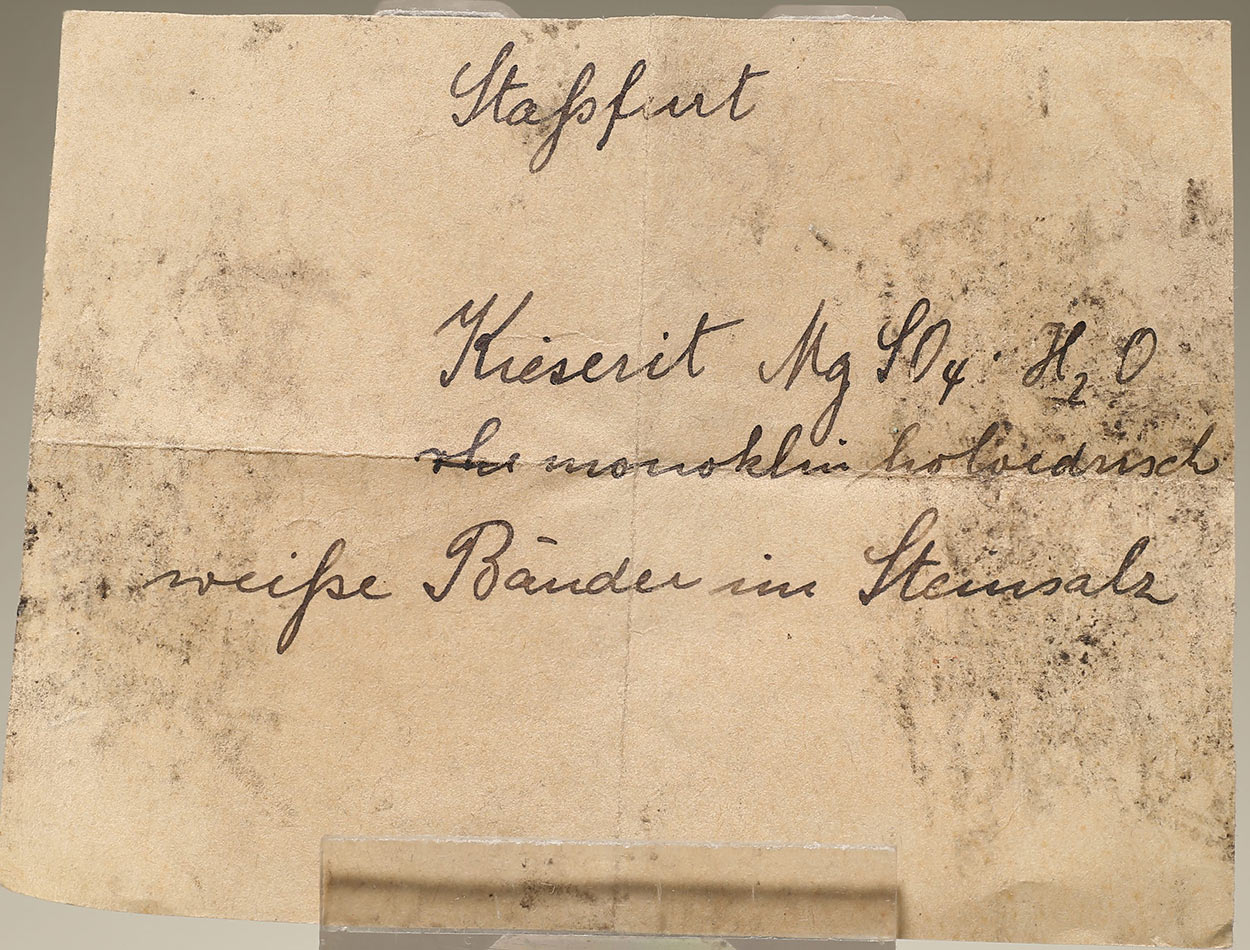 Staßfurt
Kieserit MgSO₄ · H₂O
rho monoklin holoedrisch
weiße Bänder im Steinsalz